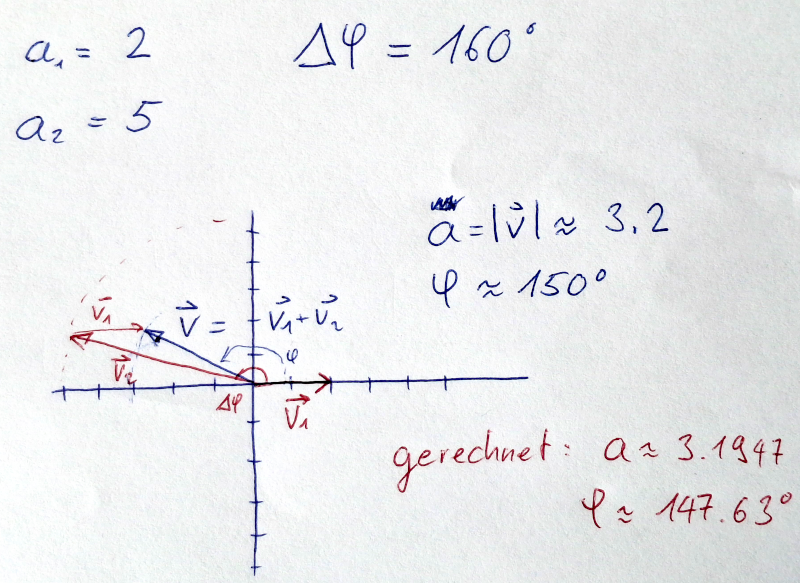 a₁ = 2
Δφ = 160°
a₂ = 5
a = |v⃗| ≈ 3.2
φ ≈ 150°
v⃗₁
v⃗ = v⃗₁ + v⃗₂
v⃗₂
φ
Δφ
v⃗₁
gerechnet: a ≈ 3.1947
φ ≈ 147.63°